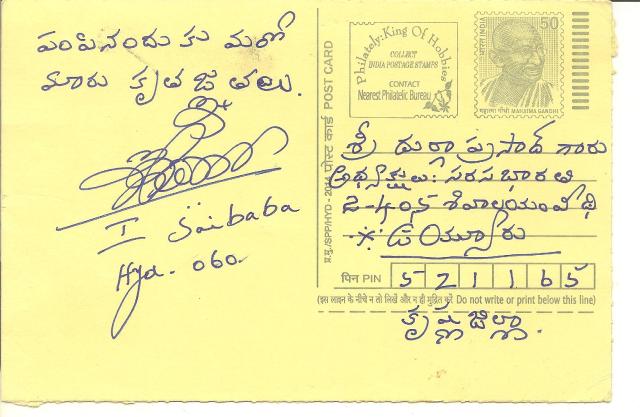 పంపినందుకు మరో
మారు కృతజ్ఞతలు.
I Saibaba
Hyd- 060.
प्र.मु./SPP/HYD - 2014 पोस्ट कार्ड POST CARD
Philately: King Of Hobbies
COLLECT
INDIA POSTAGE STAMPS
CONTACT
Nearest Philatelic Bureau
भारत INDIA 50
महात्मा गाँधी MAHATMA GANDHI
శ్రీ దుర్గా ప్రసాద్ గారు
అధ్యక్షులు: సరసభారతి
2-405 శివాలయంవీధి
ఉయ్యూరు
पिन PIN 521165
(इस लाइन के नीचे न तो लिखें और न ही मुद्रित करें Do not write or print below this line)
కృష్ణాజిల్లా.